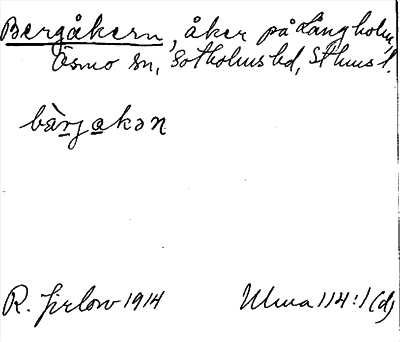 Bergåkern, åker på Långholm,
Ösmo sn, Sotholms hd, Sthms l.
bàrjakən
R. Jirlow 1914 Ulma 114:1 (d)